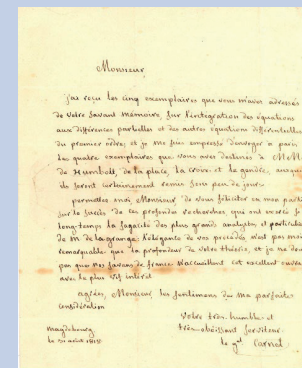 Monsieur
j'ai reçu les cinq exemplaires que vous m'avez adressés
de votre savant mémoire, sur l'intégration des équations
aux différences partielles et des autres équations différentielles
du premier ordre; et je me suis empressé d'envoyer à paris
les quatre exemplaires que vous avez destinés à
de humbolt, de la place, la croix et le gendre, auxquels
ils seront certainement remis sous peu de jours.
permettez moi, Monsieur, de vous féliciter en mon particulier
sur le succès de ces profondes recherches qui ont exercé
long-temps la sagacité des plus grands analystes et
de m. de lagrange: l'élégance de vos procédés n'est pas moins
remarquable que la profondeur de votre théorie, et je ne doute
pas que nos savans de france n'accueillent cet excellent ouvrage
avec le plus vif intérêt
agréez, Monsieur les sentimens de ma parfaite
considération
votre très-humble et
très-obéissant serviteur
magdebourg
le 31 août 1818
le gal Carnot